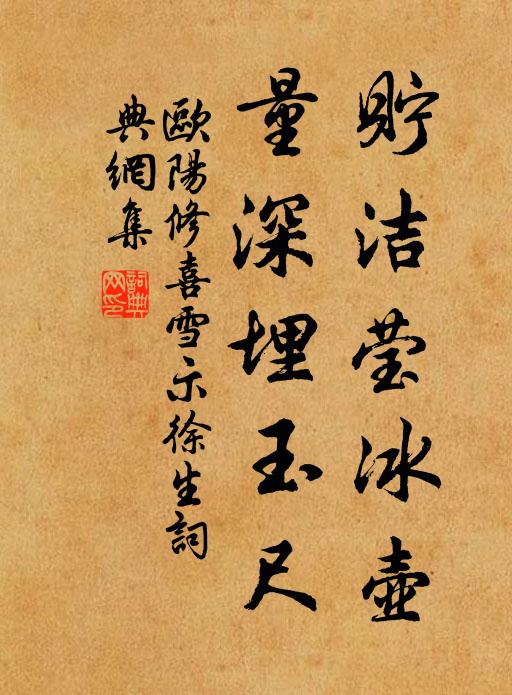 貯洁莹冰壺
量深埋玉尺
歐陽修喜雪示徐生詞
典網集
詞典
网印